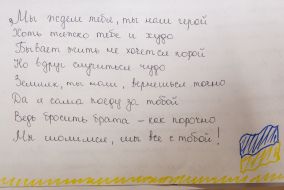 „Мы ждем тебя, ты наш герой
Хоть тяжко тебе и худо
Бывает жить не хочется порой
Но вдруг случиться чудо
Земляк, ты наш, вернешься точно
Да я сама поеду за тобой
Ведь бросить брата - как порочно
Мы молимся, мы все с тобой!